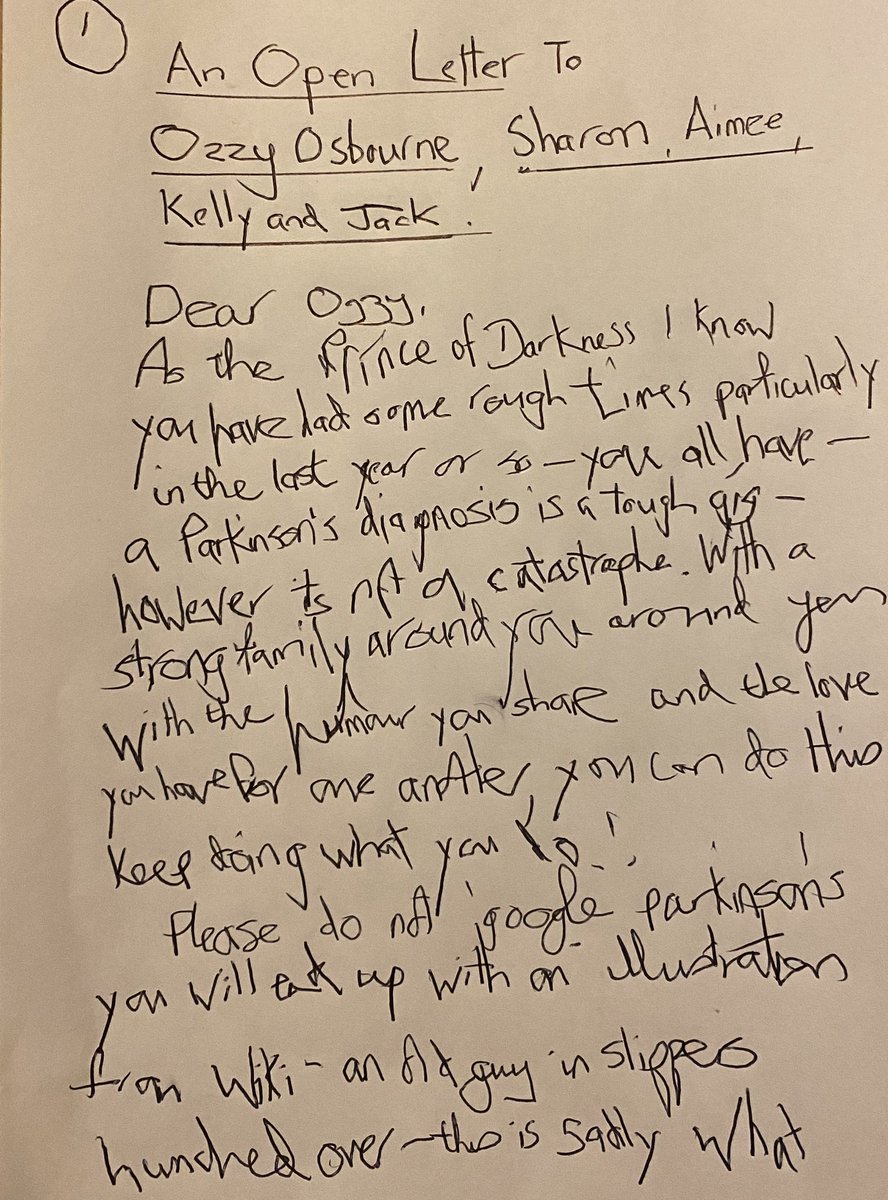 1
An Open Letter To
Ozzy Osbourne, Sharon, Aimee,
Kelly and Jack.
Dear Ozzy,
As the Prince of Darkness I know
you have had some rough times particularly
in the last year or so – you all have –
a Parkinson's diagnosis is a tough gig –
however its not a catastrophe. With a
strong family around you around you
with the humour you share and the love
you have for one another, you can do this
keep doing what you do!
Please do not 'google' parkinson's
you will end up with an illustration
from Wiki – an old guy in slippers
hunched over – this is sadly what